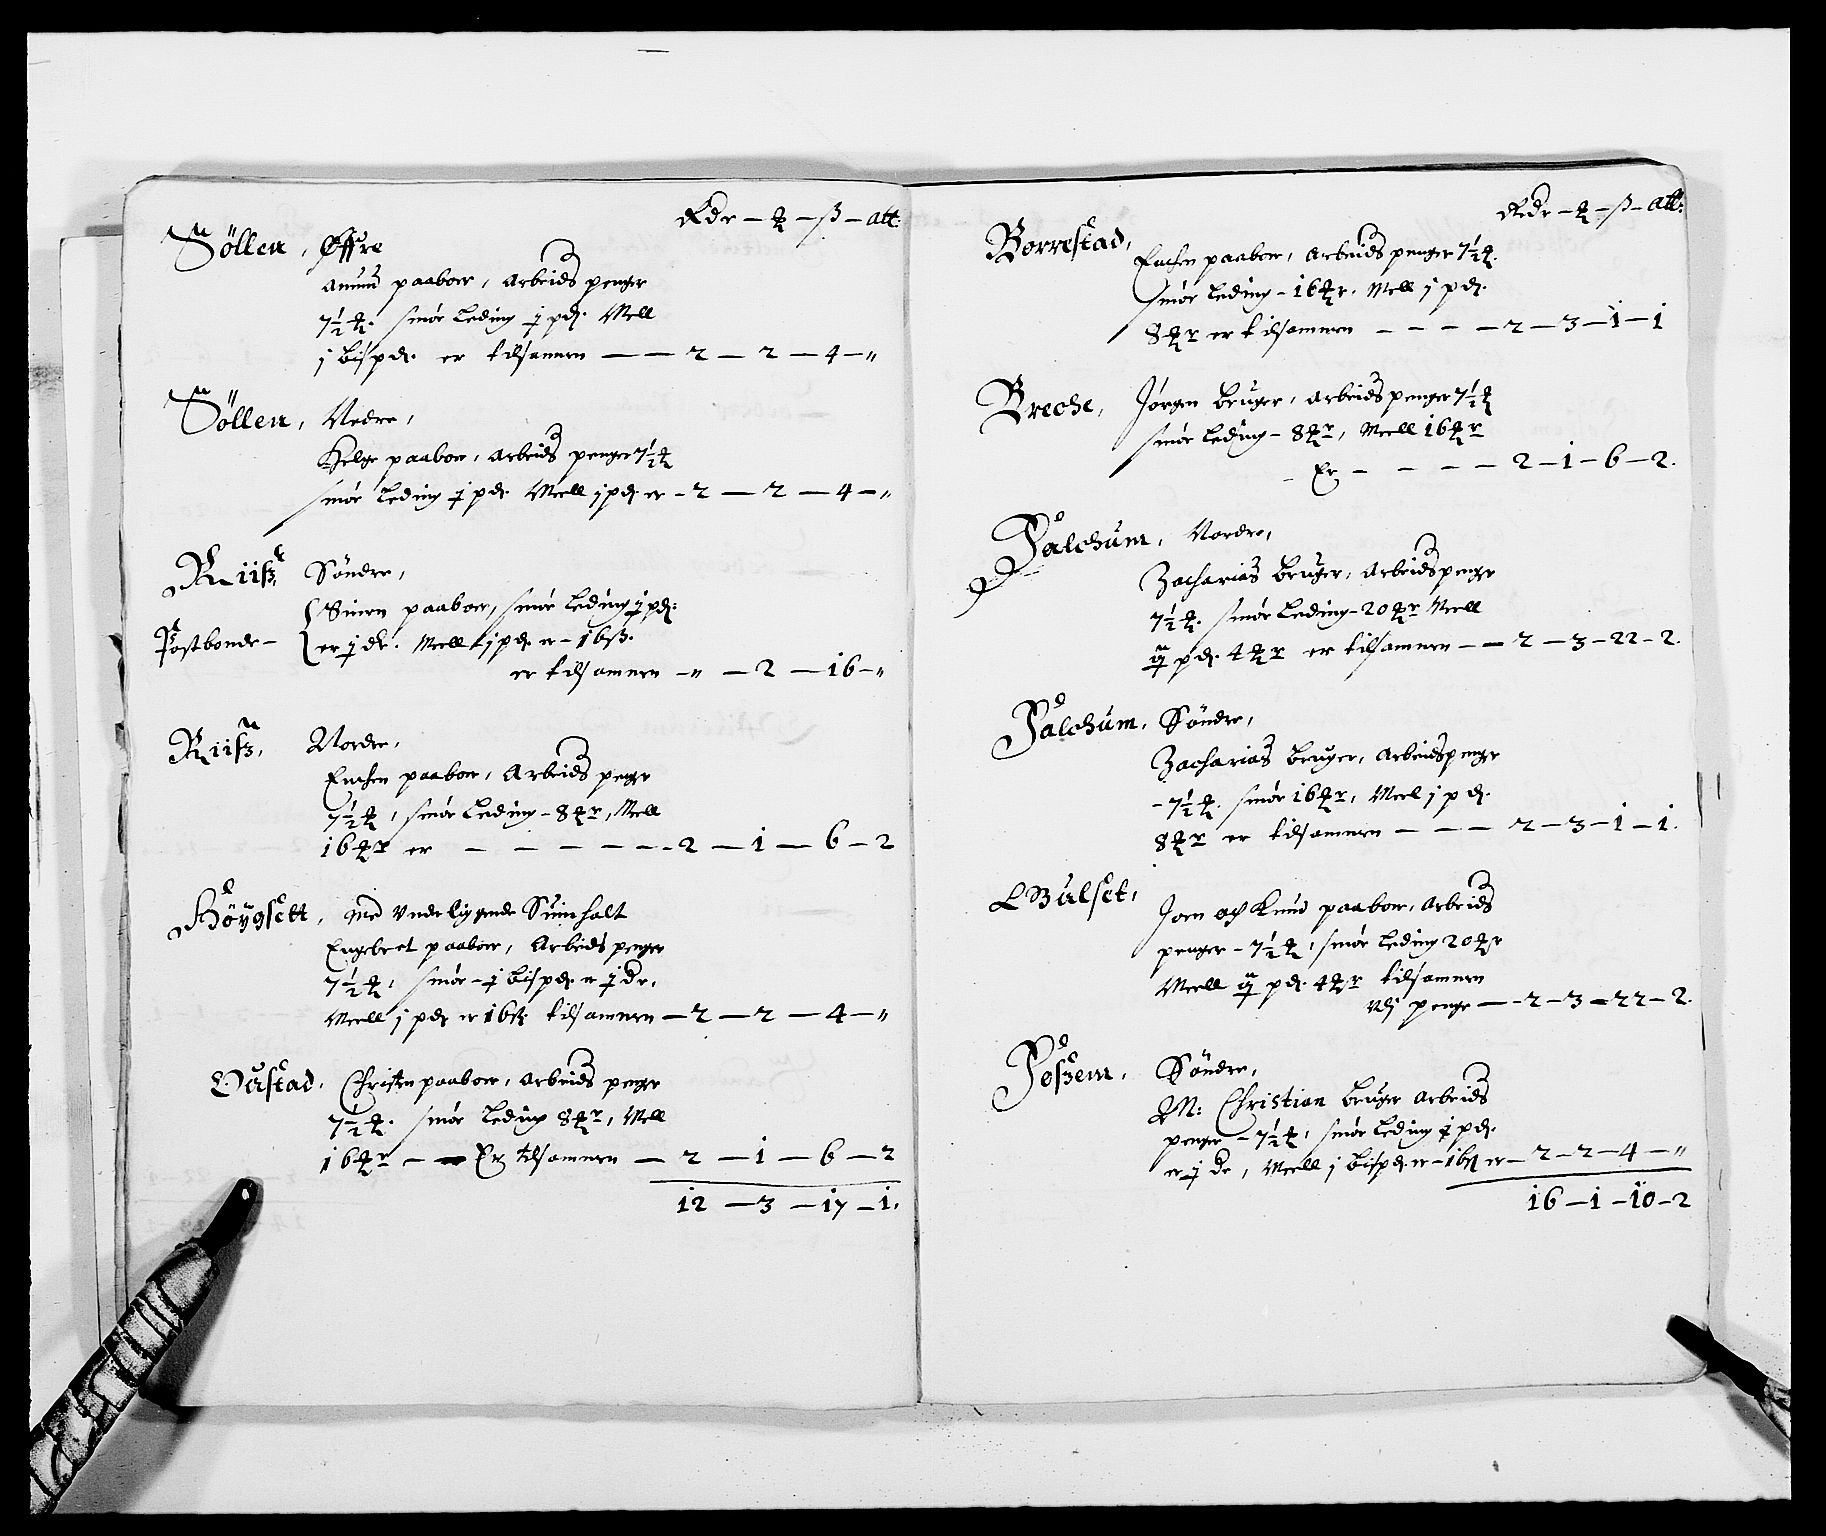 Rdr – ₰ – ß – alb:
Söllen, Øffre
Amund paaboer, Arbeids penger
7½ ₰. smør leding j pd. Mell
j bispd. er tilsamen — — 2 — 2 — 4 — "
Söllen, Nedre,
Helge paaboer, Arbeids penger 7½ ₰
smør leding j pd. Meell j pd. er – 2 — 2 — 4 — "
Riisz, Söndre,
Simen paaboer, smør leding j pd:
Postbonde – er j dr. Meell j pd. er – 16 ß.
er tilsamen – " — 2 — 16 – "
Riisz, Nordre,
Euchen paaboer, Arbeids penge
7½ ₰, smør leding – 8 ₰r, Mell
16 ₰r er – – – – – 2 — 1 — 6 – 2
Höygsett, med underliggende Suinhalt
Engebret paaboer, Arbeids penger
7½ ₰, smør – j bispd. er j dr.
Meell j pd. er 16 ß. tilsamen — 2 — 2 — 4 – "
Oustad, Christen paaboer, Arbeids penge
7½ ₰. smør leding 8 ₰r, Mell
16 ₰r – – Er tilsamen — 2 — 1 — 6 — 2
12 — 3 — 17 – 1.
Rdr – ₰ – ß – alb:
Borrestad, Euchen paaboer, Arbeids penger 7½ ₰.
smør leding – 16 ₰r. Mell j pd.
8 ₰r er tilsamen – – – – 2 — 3 – 1 – 1
Breche, Jørgen bruger, Arbeids penger 7½ ₰
smør leding – 8 ₰r, Meell 16 ₰r
Er – – – – 2 – 1 – 6 – 2.
Falchum, Nordre,
Zacharias bruger, Arbeidspenge
7½ ₰. smør leding – 20 ₰r Meell
pd. 4 ₰r er tilsamen – — 2 – 3 – 22 – 2.
Falchum, Söndre,
Zacharias bruger, Arbeidspenge
– 7½ ₰. smør 16 ₰r, Meel j pd.
8 ₰r er tilsamen – – – 2 – 3 – 1 – 1.
Bulset, Joen och Knud paaboer, Arbeids
penger – 7½ ₰, smør leding 20 ₰r
Meell pd. 4 ₰r tilsamen
udj penge — 2 – 3 – 22 – 2.
Foszem, Söndre,
M: Christian bruger Arbeids
penger – 7½ ₰, smør leding j pd.
er j dr, Meell j bispd. er – 16 ß er – 2 – 2 – 4 – "
16 – 1 – 10 – 2